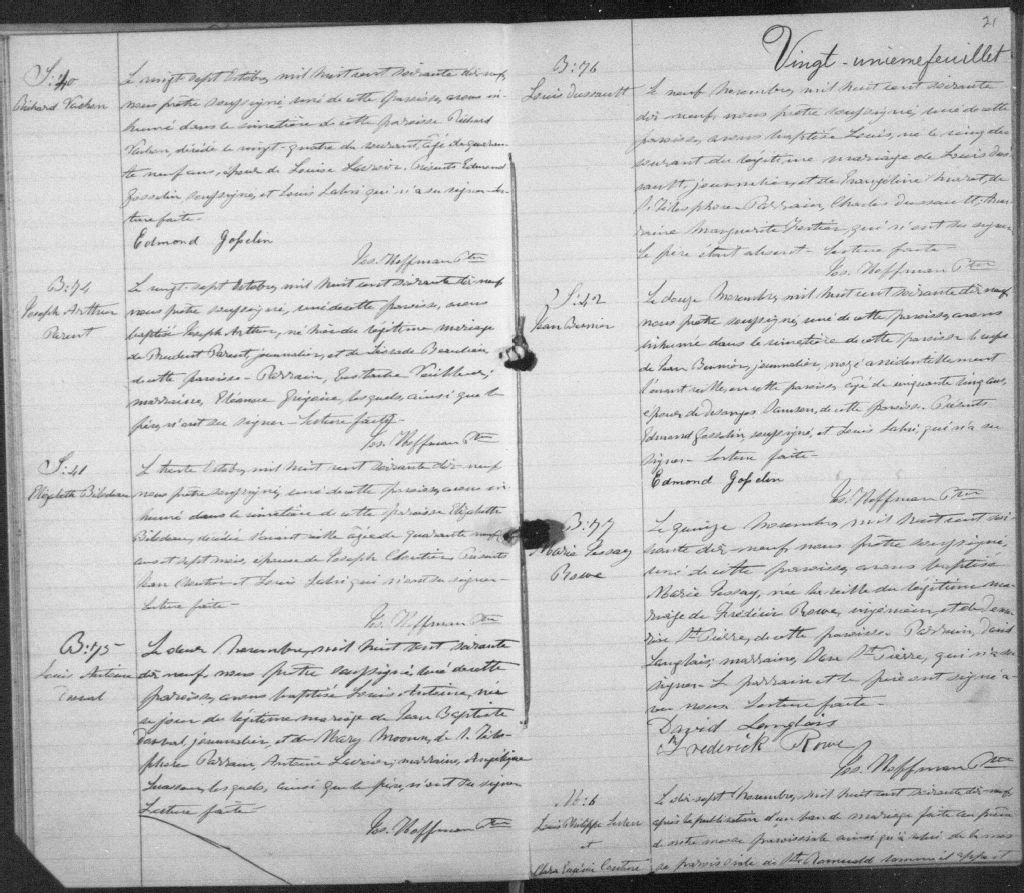 S: 40
Richard Vachon
Le vingt sept Octobre mil huit cent soixante dix neuf
nous prêtre soussigné, curé de cette paroisse, avons in-
humé dans le cimetière de cette paroisse Richard
Vachon, décédé le vingt-quatre du courant, âgé de quaran-
te neuf ans, époux de Louise Présents Edmond
Gosselin soussigné, et Louis Labri qui n'a su signer. Lec-
ture faite.
Edmond Gosselin
Jos. Hoffman Ptre
B: 74
Joseph Arthur
Parent
Le vingt-sept Octobre, mil huit cent soixante dix neuf
nous prêtre soussigné, curé de cette paroisse, avons
baptisé Joseph Arthur, né hier du légitime mariage
de Prudent Parent, journalier, et de Beaulieu,
de cette paroisse - Parrain, Eustache Veilleux;
marraine, Eléonore Grégoire, lesquels, ainsi que le
père, n'ont su signer - Lecture faite -
Jos. Hoffman Ptre
S: 41
Elizabeth Bilodeau
Le trente Octobre, mil huit cent soixante dix-neuf
nous prêtre soussigné, curé de cette paroisse, avons in-
humé dans le cimetière de cette paroisse Elizabeth
Bilodeau, décédée l'avant veille âgée de quarante neuf
ans et sept mois, épouse de Joseph Présents
Jean et Louis Labri qui n'ont su signer -
Lecture faite -
Jos. Hoffman Ptre
B: 75
Louis Antoine
Le deux Novembre, mil huit cent soixante
dix neuf nous prêtre soussigné curé de cette
paroisse, avons baptisé Louis Antoine, né
ce jour du légitime mariage de Jean Baptiste
journalier, et de Mary Moore, de S. Téles-
phore Parrain Antoine marraine, Angélique
lesquels, ainsi que le père, n'ont su signer
Lecture faite
Jos. Hoffman Ptre
21
Vingt-unième feuillet
B: 76
Louis Dussault
Le neuf Novembre, mil huit cent soixante
dix-neuf, nous prêtre soussigné, curé de cette
paroisse, avons baptisé Louis, né le cinq du
courant du légitime mariage de Louis Dus-
sault, journalier, et de Evangéline de
S. Télesphore - Parrain, Charles Dussault, mar-
raine Marguerite qui n'ont su signer
Le père étant absent - Lecture faite -
Jos. Hoffman Ptre
S: 42
Jean
Le douze Novembre, mil huit cent soixante dix neuf
nous prêtre soussigné, curé de cette paroisse, avons
inhumé dans le cimetière de cette paroisse le corps
de Jean journalier, noyé accidentellement
l'avant veille, en cette paroisse, âgé de cinquante cinq ans,
époux de Desanges Samson, de cette paroisse - Présents
Edmond Gosselin soussigné, et Louis Labri, qui n'a su
signer - Lecture faite -
Edmond Gosselin
Jos. Hoffman Ptre
B: 77
Marie
Rowe
Le quinze Novembre, mil huit cent soi-
xante dix-neuf nous prêtre soussigné,
curé de cette paroisse, avons baptisé
Marie née la veille du légitime ma-
riage de Frédéric Rowe, ingénieur, et de
St Pierre, de cette paroisse - Parrain, David
Langlois; marraine, St Pierre, qui n'a su
signer - Le parrain et le père ont signé a-
vec nous. Lecture faite -
David Langlois
Frederick Rowe
Jos. Hoffman Ptre
M: 6
Louis Philippe
et
Clara Eugénie Couture
Le dix-sept Novembre, mil huit cent soixante dix-neuf
après la publication d'un ban de mariage faite au prône
de notre messe paroissiale ainsi qu'à celui de la mes-
se paroissiale de St Romuald comme il appert